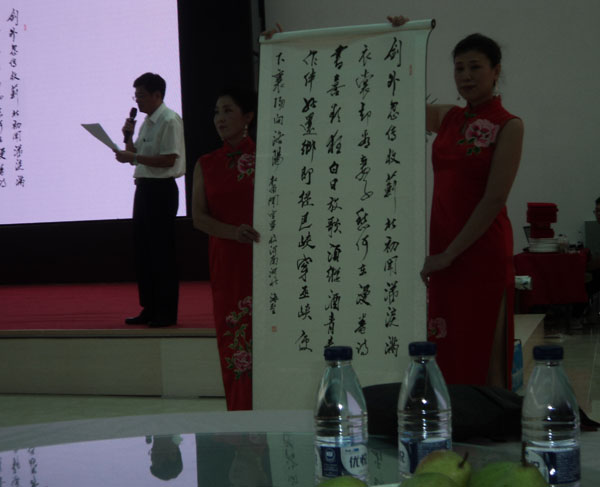 劍外忽传收蓟北初闻涕泪满
衣裳却看妻子愁何在漫卷诗
书喜欲狂白日放歌须纵酒青春
作伴好还乡即從巴峡穿巫峡便
下襄阳向洛阳 杜甫闻官军收河南河北
劍外忽传收蓟北初闻涕泪满
优悦